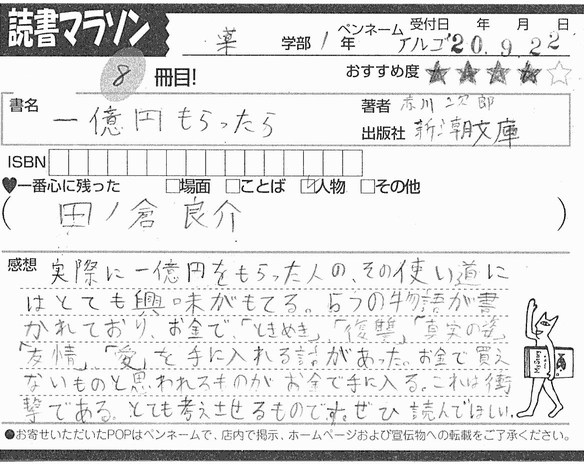 読書マラソン
薬 学部 1 年 ペンネーム アルゴ 受付日 20 年 9 月 22 日
8 冊目! おすすめ度 ★★★★☆
書名 一億円もらったら 著者 赤川次郎
出版社 新潮文庫
ISBN
♥一番心に残った □場面 □ことば ☑人物 □その他
( 田ノ倉 良介 )
感想 実際に一億円をもらった人の、その使い道に
はとても興味がもてる。5つの物語が書
かれており、お金で、「ときめき」「復讐」「真実の姿」
「友情」「愛」を手に入れる話があった。お金で買え
ないものと思われるものがお金で手に入る。これは衝
撃である。とても考えさせるものです。ぜひ読んでほしい。
●お寄せいただいたPOPはペンネームで、店内で掲示、ホームページおよび宣伝物への転載をご了承ください。